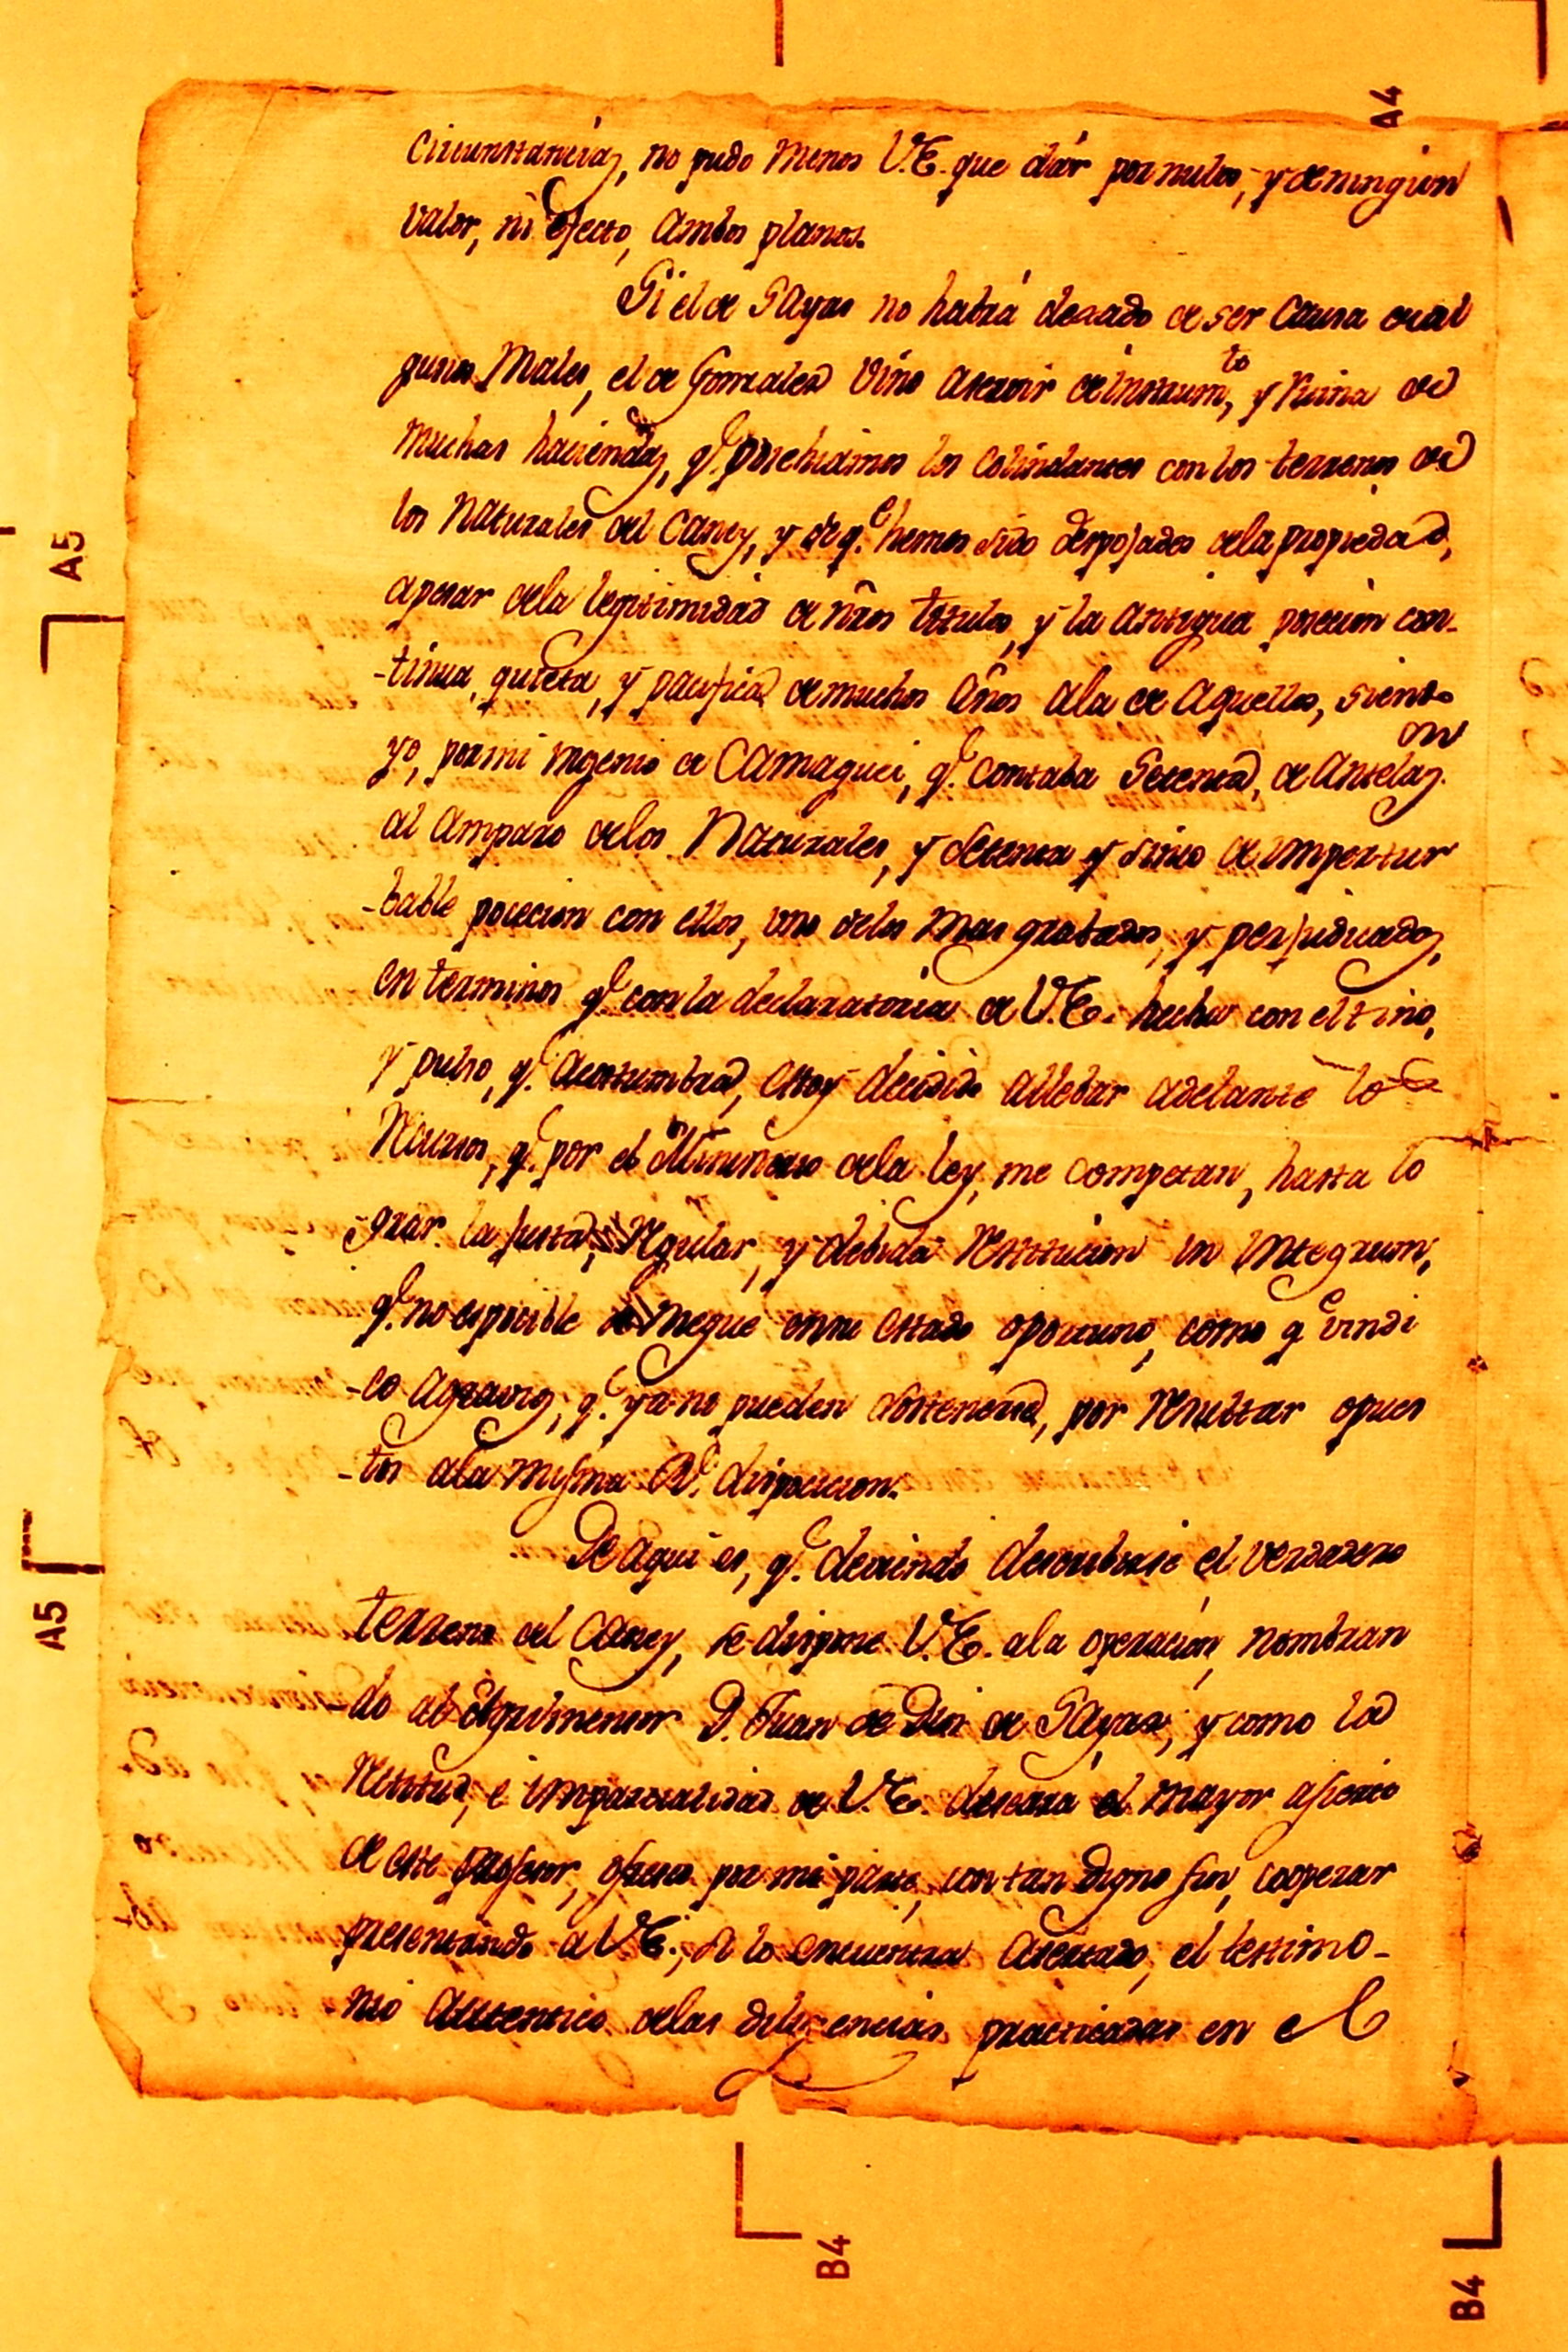 A4
circunstancias, no pudo menos V.E. que dár por nulos, y de ningun
valor, ni efecto, ambos planos.
Si el de Sayas no habrá dexado de ser causa de al
gunos Males, el de Gonzales vino aservir de instrum.to, y Ruina de
muchas haciendas, q.e posehiamos los colindantes con los terrenos de
los Naturales del Caney, y de q.e hemos sido despojados dela propiedad,
apesar dela legitimidad de ñros titulos, y la antigua posecion con-
-tinua, quieta, y pacifica de muchos años ala de aquellos, siendo
yo, por mi ingenio de Camaguei, q.e contaba Setenta, de Antelaz.on
al amparo delos Naturales, y setenta y sinco de impertur
-bable posecion con ellos, uno delos mas grabados, y perjudicados,
en terminos q.e con la declaratoria de V.E. hecha con el tino,
y pulso, q.e acostumbra, estoy decidido allebar adelante los
Recursos, q.e por el Ministerio dela ley, me competan, hasta lo
-grar la justa, Regular, y debida Restitucion in integrum,
q.e no es posible se me niegue en mi estado oportuno, como q.e vindi
-co agravios, q.e ya no pueden sostenerse, por Resultar opues
-tos ala misma R.l disposicion.
De aqui es, q.e deviendo descubrirse el verdadero
terreno del Caney, se dispone V.E. ala operacion, nombran
-do al Agrimensor D. Juan de Dios de Sayas; y como la
Rectitud, é imparcialidad de V.E. deseará el mayor asierto
de este profesor, ofresco por mi parte, con tan digno fin, cooperar
presentando a V.E., si lo encuentra asertado, el testimo-
-nio autentico delas diligencias practicadas en el
A5
A5
B4
B4